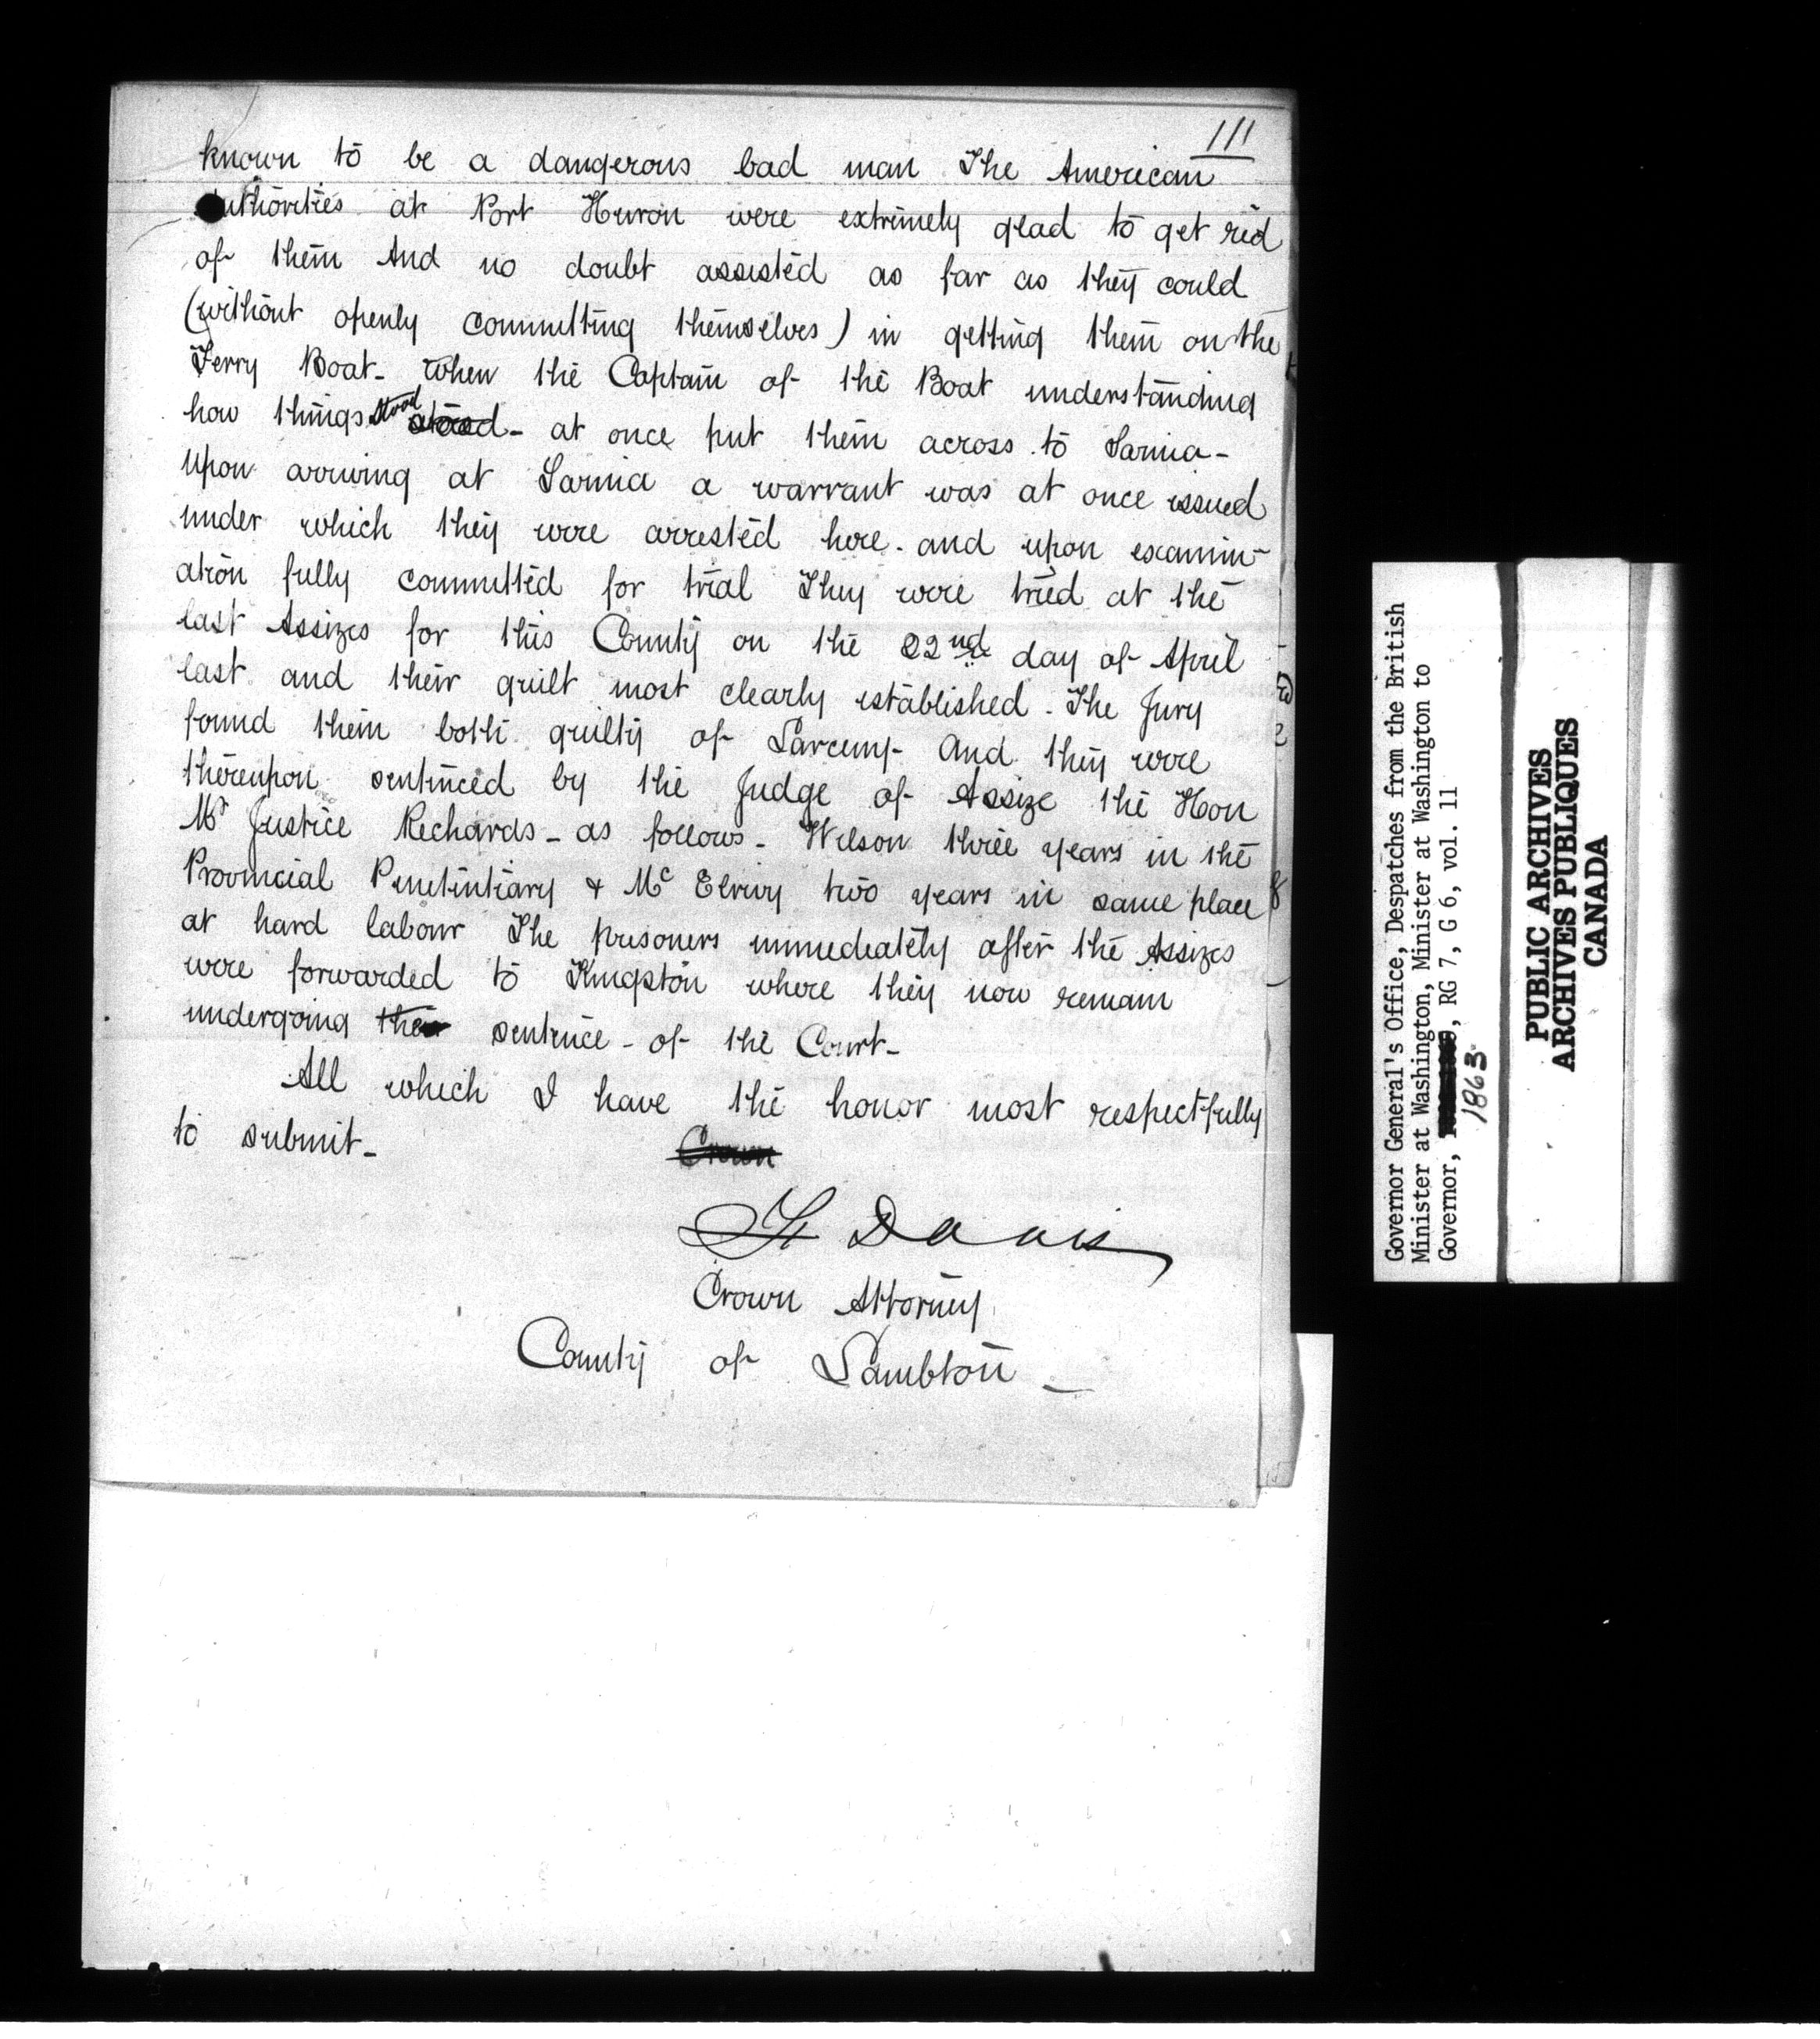 111
known to be a dangerous bad man The American
authorities at Port Huron were extremely glad to get rid
of them And no doubt assisted as far as they could
(without openly committing themselves) in getting them on the
Ferry Boat - when the Captain of the Boat understanding
how things stood stood - at once put them across to Sarnia -
Upon arriving at Sarnia a warrant was at once issued
under which they were arrested here - and upon examin-
ation fully committed for trial They were tried at the
last Assizes for this County on the 22nd day of April
last and their guilt most clearly established - The Jury
found them both guilty of Larceny - And they were
thereupon sentenced by the Judge of Assize the Hon
Mr Justice Richards - as follows - Wilson three years in the
Provincial Penitentiary & Mc Elroy two years in same place
at hard labour The prisoners immediately after the Assizes
were forwarded to Kingston where they now remain
undergoing their sentence - of the Court -
All which I have the honor most respectfully
to submit -
Crown
Davis
Crown Attorney
County of Lambton -
Governor General's Office, Despatches from the British
Minister at Washington, Minister at Washington to
Governor, RG 7, G 6, vol. 11
1863
PUBLIC ARCHIVES
ARCHIVES PUBLIQUES
CANADA